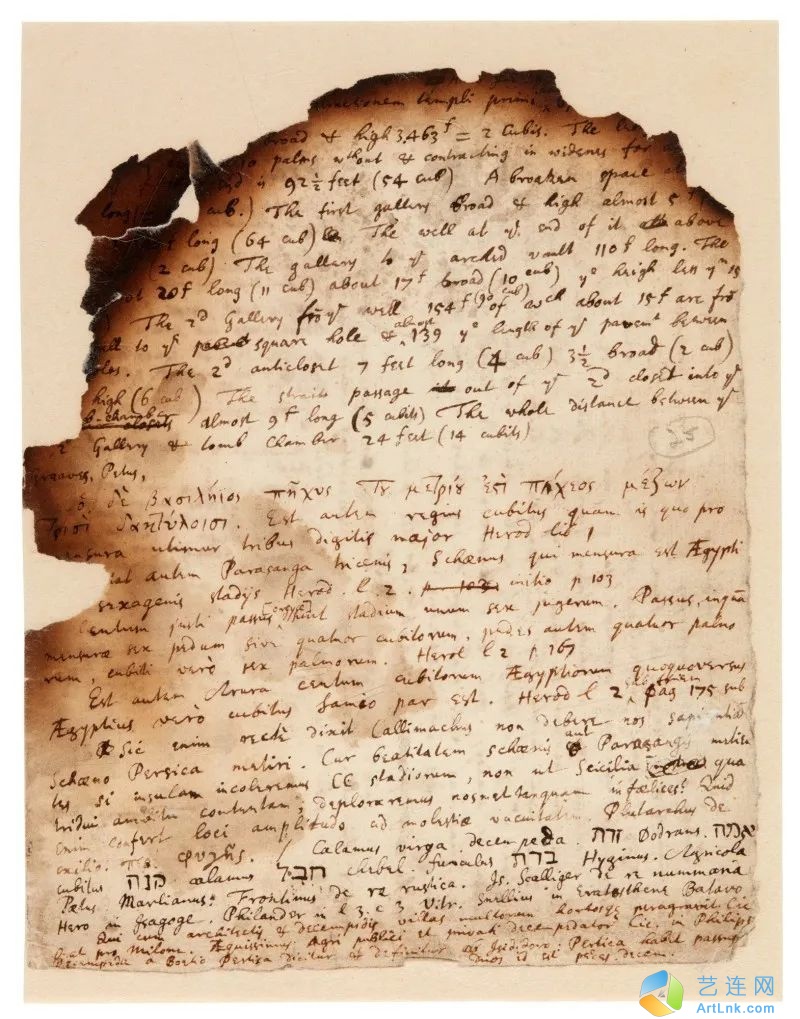 templi primi
broad & high 3.463f = 2 Cubis. The
palms wthout & contracting in widenes for
is 92½ feet (54 cub) A broaken space
long cub.) The first gallery broad & high almost 5f
long (64 cub) The well at ye end of it above
(2 cub) The gallery to ye arched vault 110f long. The
20f long (11 cub) about 17f broad (10 cub) ye heigh less yn 15
The 2d Gallery frõ ye well 154f (90 cub) of wch about 15f are frõ
to ye square hole & almost 139 ye length of ye pavemt between
The 2d anticloset 7 feet long (4 cub) 3½ broad (2 cub)
high (6 cub) The straite passage out of ye 2d closet into ye
almost 9f long (5 cubits) The whole distance between ye
2 Gallery & tomb chamber 24 feet (14 cubits)
25
Greaves, Petus,
ὁ δὲ βασιλήιος πῆχυς τοῦ μετρίου ἐστὶ πήχεος μέζων
τρισὶ δακτύλοισι. Est autem regius cubitus quam is quo pro
mensura utimur tribus digitis major Herod lib 1
autem Parasanga tricenis, Schænus qui mensura est Ægypti
sexagenis stadijs Herod. l. 2. initio p 103
Centum justi passus stadium unum sex jugerum. Passus, inquã
mensuræ sex pedum sive quatuor cubitorum, pedes autem quatuor palmo
rum, cubiti verò sex palmorum. Herod l 2 p 167
Est autem Arura centum cubitorum Ægyptiorum quoquoversus
Ægyptius verò cubitus Samio par est. Herod l 2, pag 175 sub
Sic enim rectè dixit Callimachus non debere nos sapientiã
Schæno Persica metiri. Cur beatitatem schænis aut Parasangis metien
tes si insulam incoleremus CC stadiorum, non ut Scicilia qua
tridui ambitu contentam, deploraremus nosmet tanquam infælices? Quid
enim confert loci amplitudo ad molestiæ vacuitatem. Plutarchus de
exilio. φυγῆς. Calamus virga decempeda זרת Dodrans. אמה
cubitus קנה calamus חבל chebel. funculus ברת Hyginus. Agricola
Pætus Marlianus. Frontinus de re rustica. Js. Scalliger de re nummaria
Hero in Isagoge. Philander in l 3. c 3 Vitr. Snellius in Eratosthene Batavo
Qui cum architectis & decempedis villas multorum hortosque peragravit Cic
pro Milone. Æquissimus Agri publici et privati decempedator Cic. in Philipp
Decempeda a Boetio Pertica dicitur & definitur ab Isidoro: Pertica habet passus
duos id est pedes decem.
艺连网
ArtLnk.com